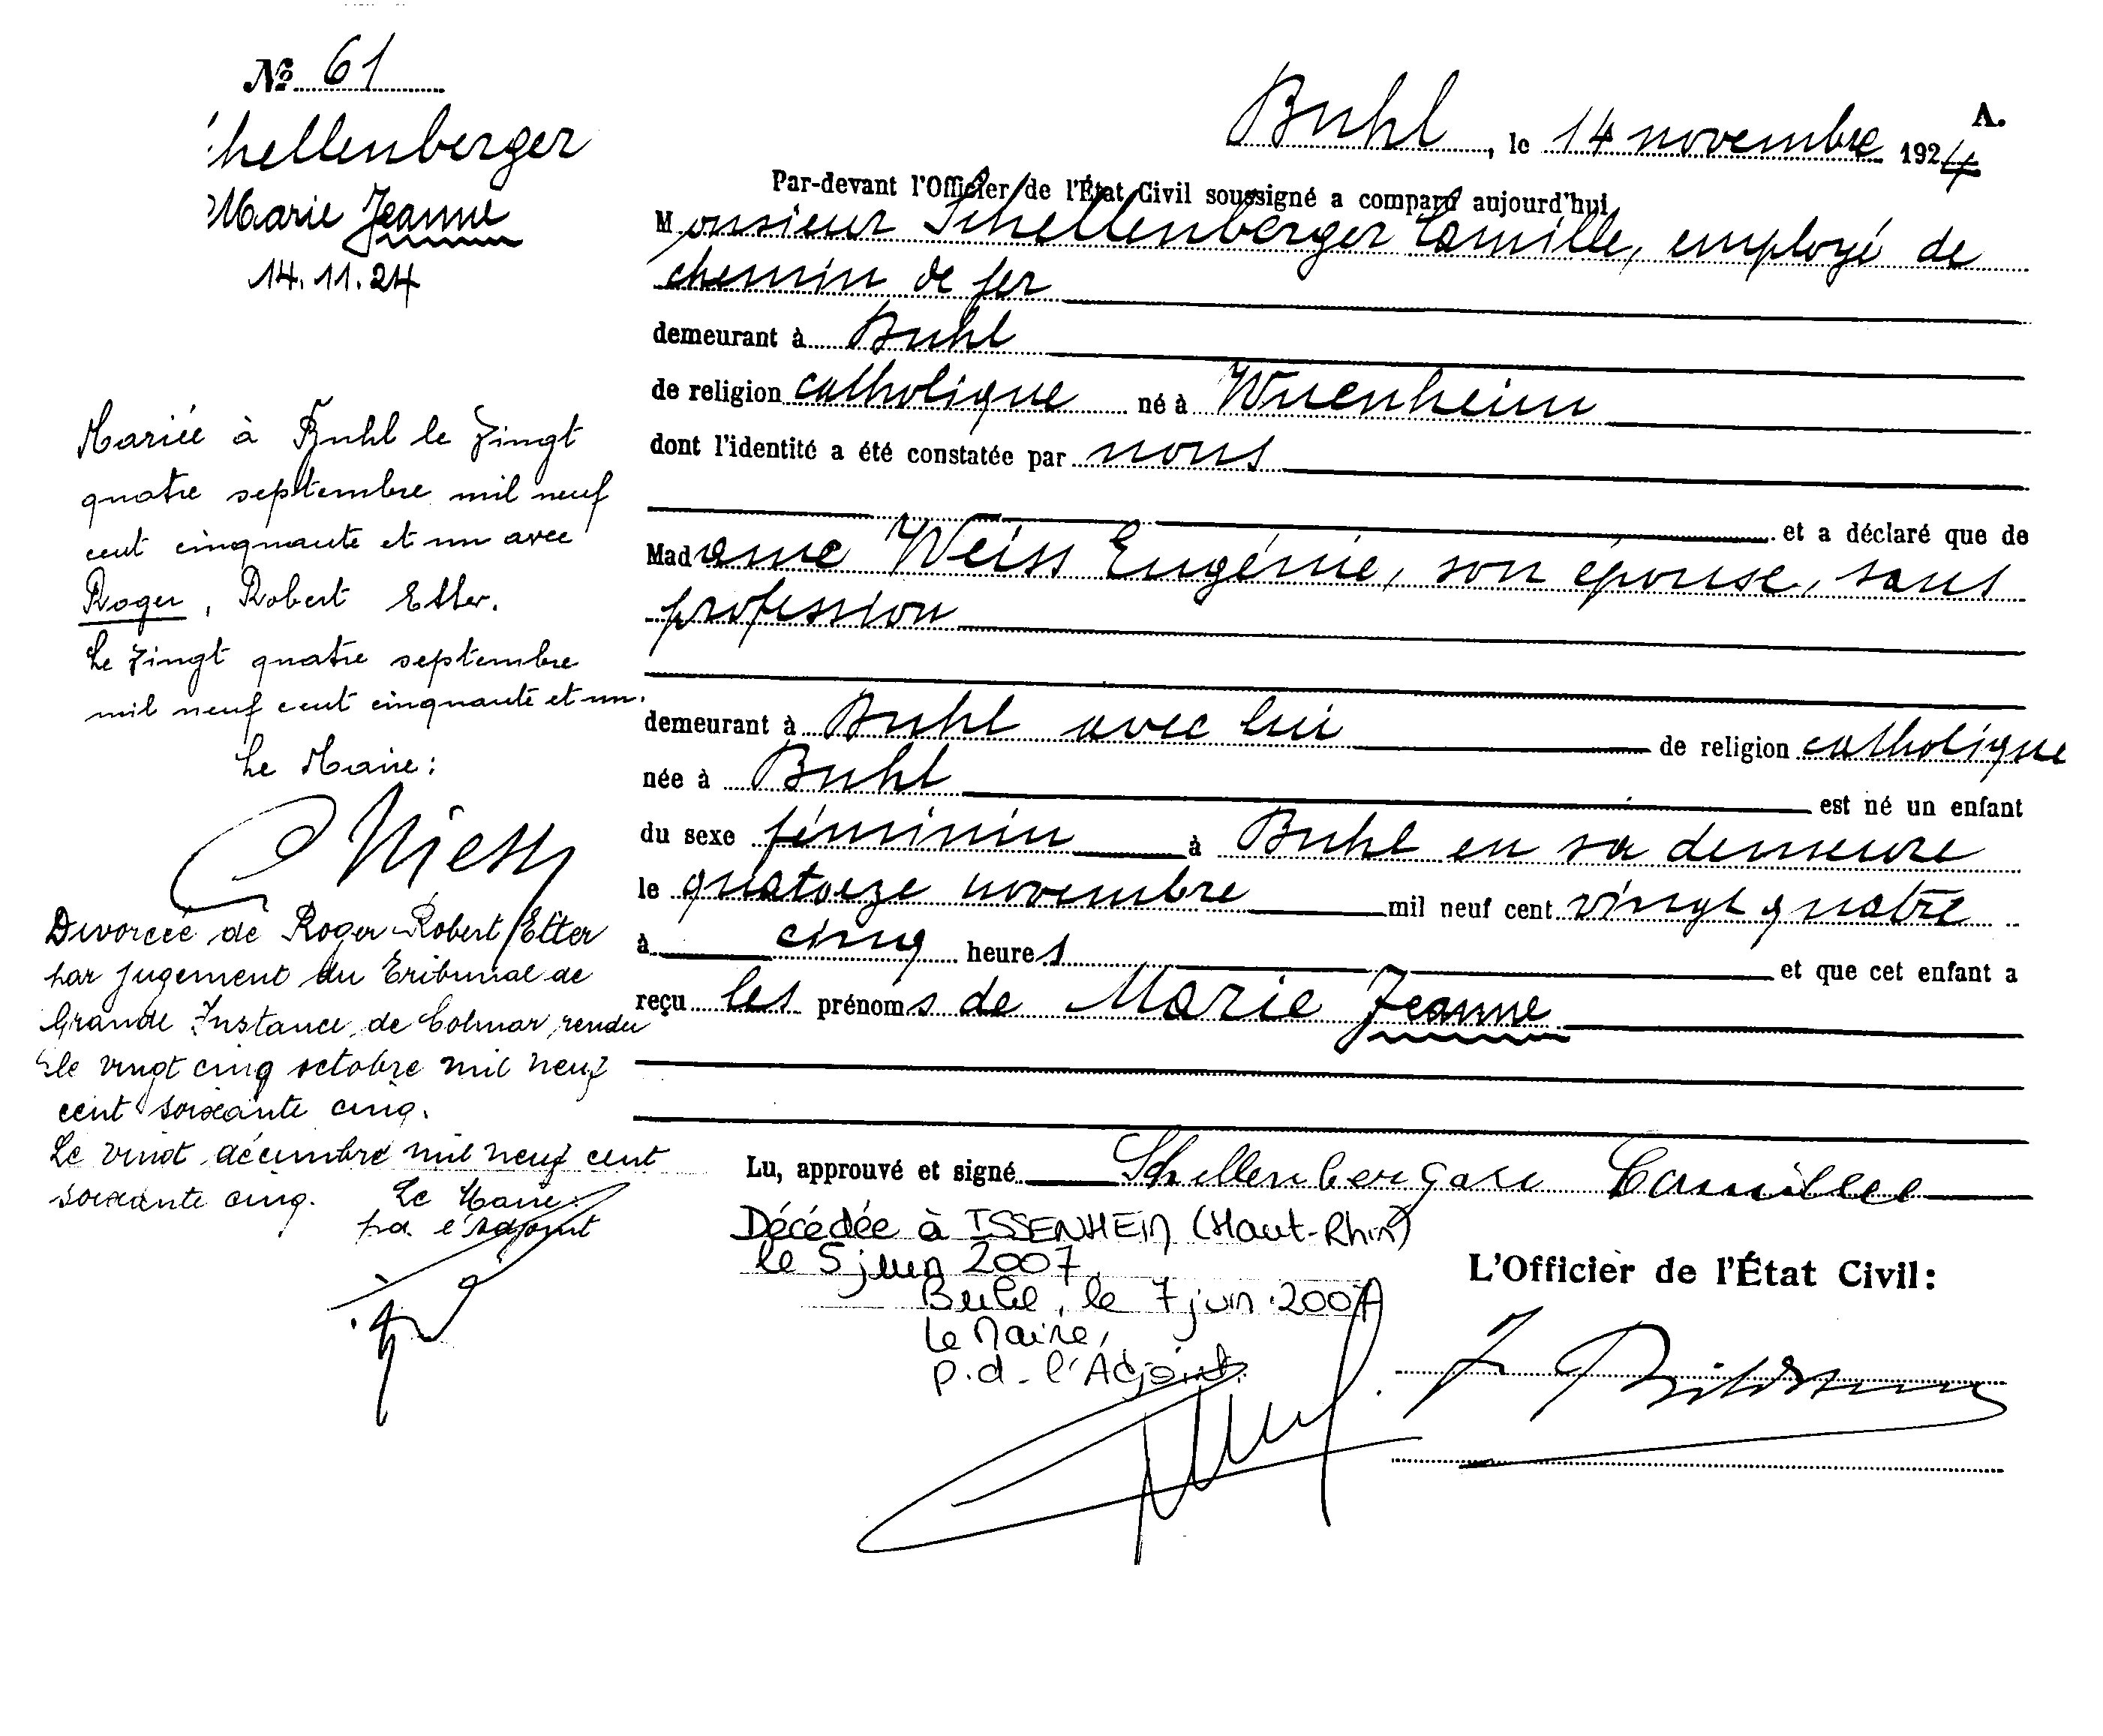 № 61
Schellenberger
Marie Jeanne
14.11.24
Mariée à Buhl le vingt
quatre septembre mil neuf
cent cinquante et un avec
Roger, Robert Etter.
Le vingt quatre septembre
mil neuf cent cinquante et un.
Le Maire:
Divorcée de Roger Robert Etter
par jugement du Tribunal de
Grande Instance de Colmar, rendu
le vingt cinq octobre mil neuf
cent soixante cinq.
Le vingt décembre mil neuf cent
soixante cinq. Le Maire:
p.d. l'adjoint
A.
Buhl, le 14 novembre 1924
Par-devant l'Officier de l'État Civil soussigné a comparu aujourd'hui
Monsieur Schellenberger Camille, employé de
chemin de fer
demeurant à Buhl
de religion catholique né à Wuenheim
dont l'identité a été constatée par nous
et a déclaré que de
Madame Weiss Eugénie, son épouse, sans
profession
demeurant à Buhl avec lui de religion catholique
née à Buhl est né un enfant
du sexe féminin à Buhl en sa demeure
le quatorze novembre mil neuf cent vingt quatre
à cinq heures et que cet enfant a
reçu les prénoms de Marie Jeanne
Lu, approuvé et signé Schellenberger Camille
Décédée à ISSENHEIM (Haut-Rhin)
le 5 juin 2007
Buhl, le 7 juin 2007
Le Maire,
p.d. l'Adjoint
L'Officier de l'État Civil: